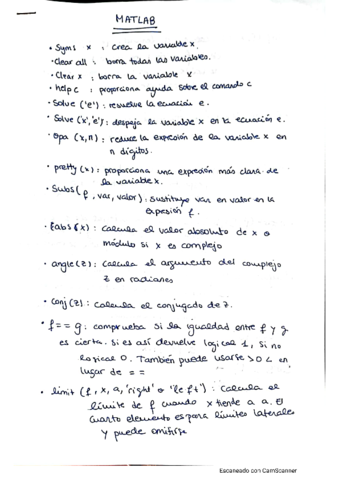 MATLAB
• Syms x : crea la variable x.
• clear all : borra todas las variables.
• Clear x : borra la variable x
• help c : proporciona ayuda sobre el comando c
• Solve ('e') : resuelve la ecuación e.
• Solve ('x','e') : despeja la variable x en la ecuación e.
• vpa (x,n) : reduce la expresión de la variable x en
n dígitos.
• pretty (x) : proporciona una expresión más clara de
la variable x.
• Subs ( f, var, valor) : sustituye var en valor en la
expresión f.
• abs (x) : calcula el valor absoluto de x o
módulo si x es complejo
• angle (z) : calcula el argumento del complejo
z en radianes
• conj (z) : calcula el conjugado de z.
• f == g : comprueba si la igualdad entre f y g
es cierta. Si es así devuelve logical 1, si no
logical 0. También puede usarse > o < en
lugar de ==
• limit (f, x, a, 'right' o 'left') : calcula el
límite de f cuando x tiende a a. El
cuarto elemento es para límites laterales
y puede omitirse
Escaneado con CamScanner